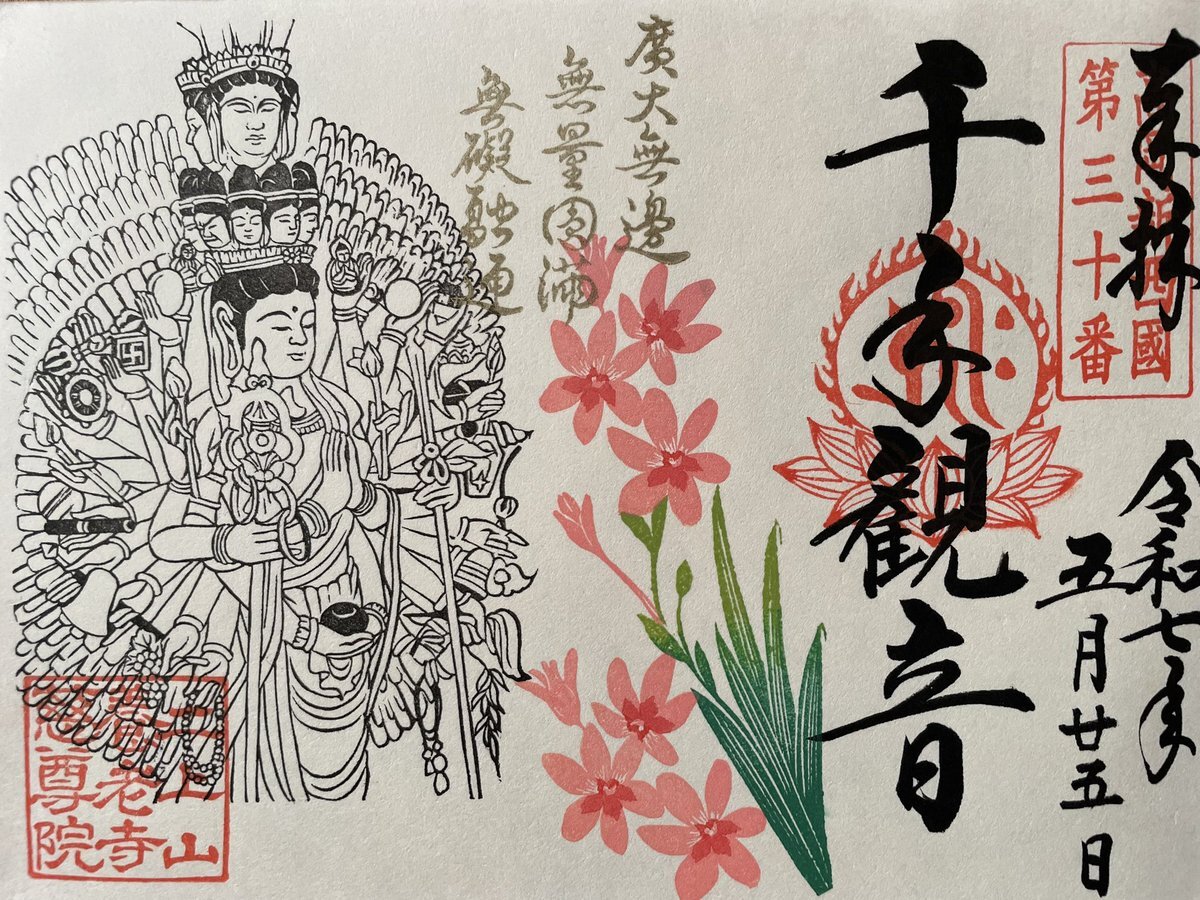 奉拝
新西國
第三十番
令和七年
五月廿五日
千手観音
廣大無邊
無量圓満
無礙融通
山
老寺
尊院